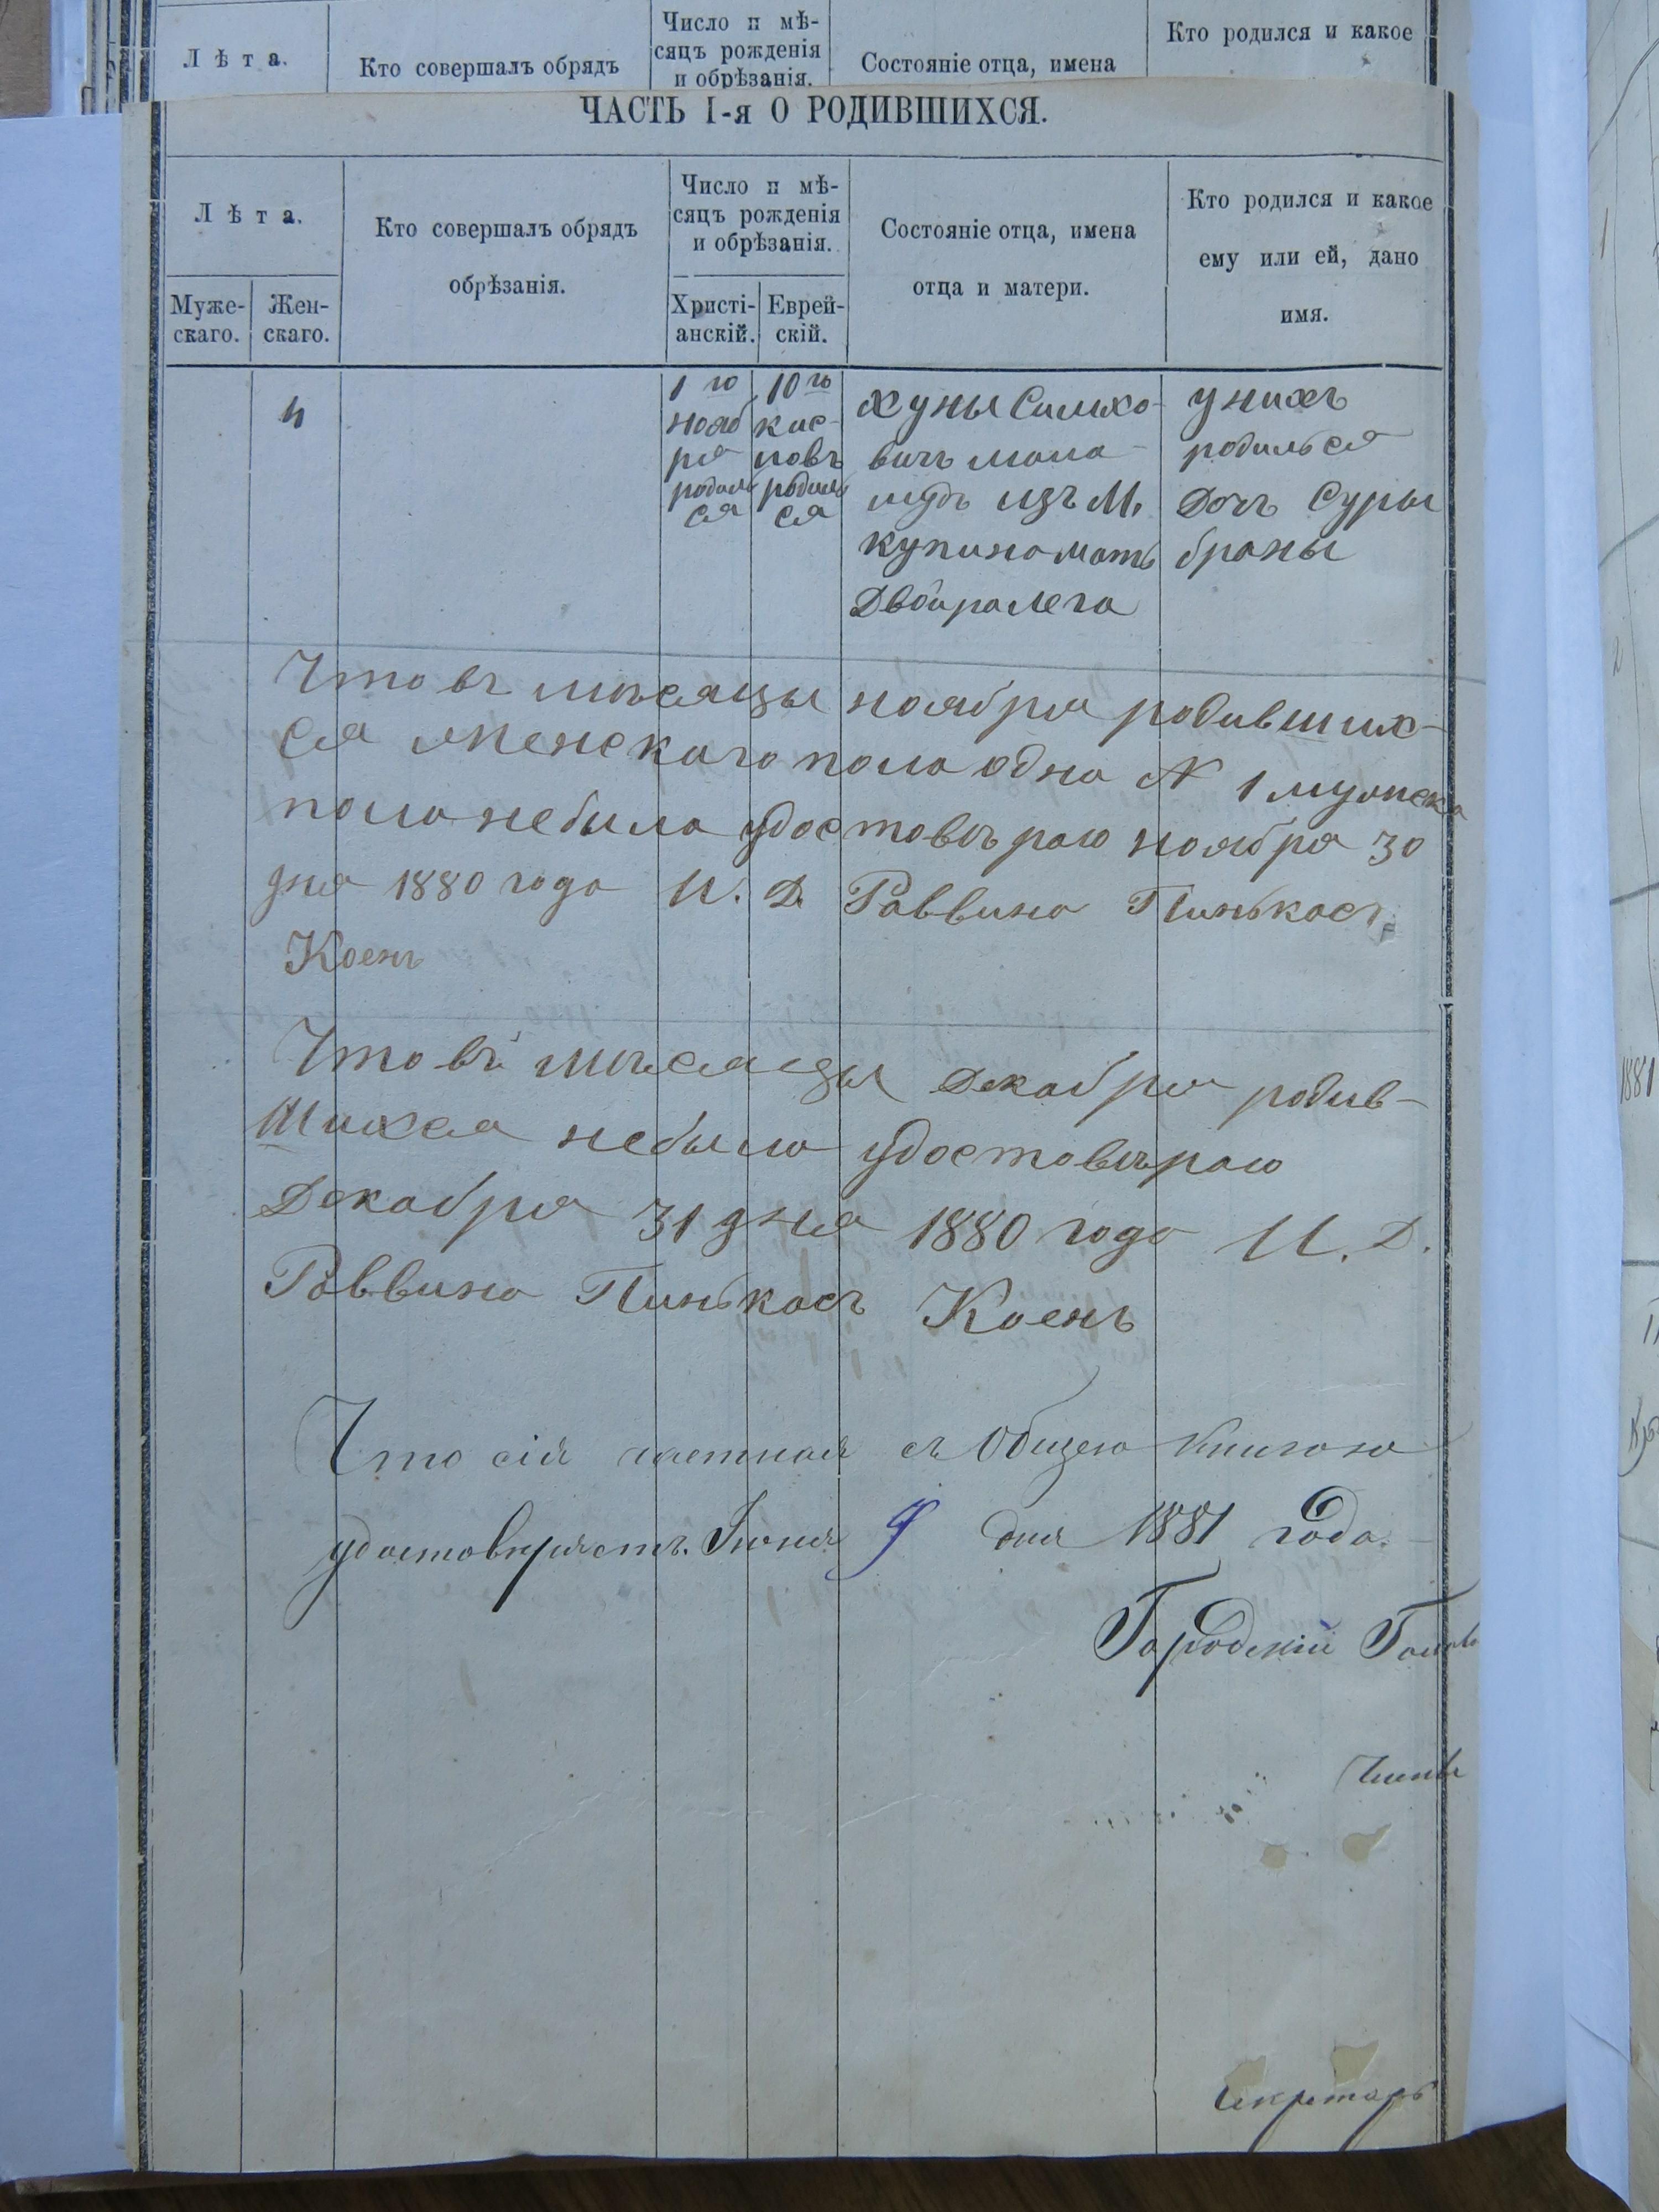 Лѣта.
Кто совершалъ обрядъ
Число и мѣ-
сяцъ рожденія
и обрѣзанія.
Состояніе отца, имена
Кто родился и какое
ЧАСТЬ I-я О РОДИВШИХСЯ.
Лѣта.
Муже-
скаго.
Жен-
скаго.
Кто совершалъ обрядъ
обрѣзанія.
Число и мѣ-
сяцъ рожденія
и обрѣзанія.
Христі-
анскій.
Еврей-
скій.
Состояніе отца, имена
отца и матери.
Кто родился и какое
ему или ей, дано
имя.
4
1 го
нояб
ря
родил
ся
10 го
кис-
ловъ
родил
ся
Хуны Симхо-
вичъ
изъ М.
Купина мать
Двойра Лега
у нихъ
родилься
дочъ Суры
браны
Что въ мѣсяцы ноября родивших-
ся женскаго пола одна № 1 мужска
пола небыла удостовѣраю ноября 30
дня 1880 года И. Д. Раввина Пинькасъ
Коенъ
Что въ мѣсяцы Декабря родив-
шихся небыло удостовѣраю
Декабря 31 дня 1880 года И. Д.
Раввина Пинькасъ Коенъ
Что сія частная съ Общею Книгою
удостовѣряетъ. Іюня 9 дня 1881 года.
Городскій Голова
Члены
Секретарь
1881